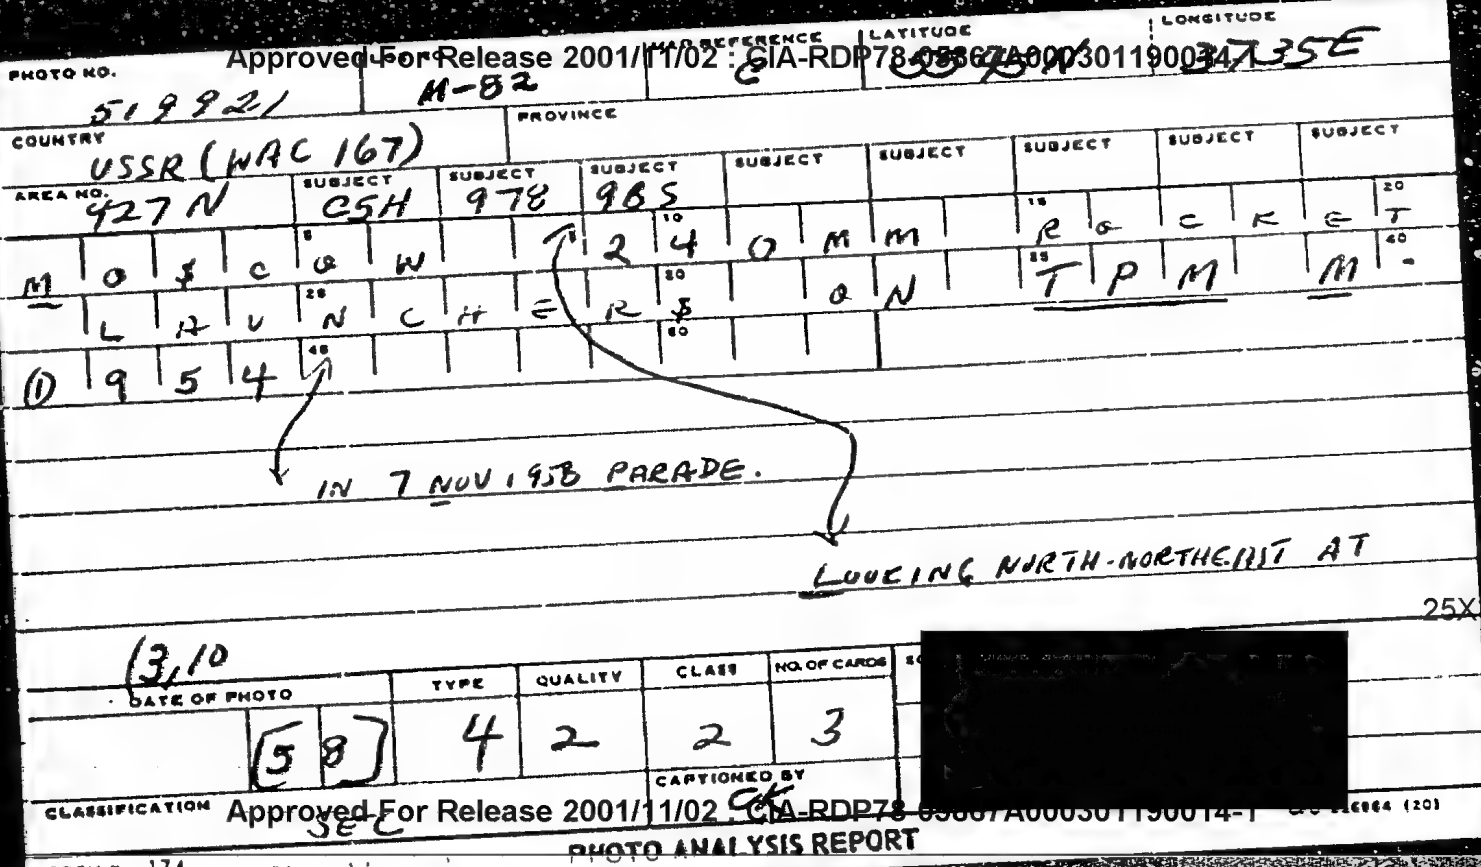 Approved For Release 2001/11/02 : CIA-RDP78-05867A000301190014-1
PHOTO NO. MAP REFERENCE LATITUDE LONGITUDE
519921 M-82 E 3735E
COUNTRY PROVINCE
USSR (WAC 167)
AREA NO. SUBJECT SUBJECT SUBJECT SUBJECT SUBJECT SUBJECT SUBJECT SUBJECT
427N CSH 978 985
MO$COW 240MM ROCKET
LAUNCHER$ ON TPM M-
1954
IN 7 NOV 1958 PARADE.
LOOKING NORTH-NORTHEAST AT
25X
(3,10
DATE OF PHOTO TYPE QUALITY CLASS NO. OF CARDS
[58] 4 2 2 3
CAPTIONED BY
CK
CLASSIFICATION
SEC
Approved For Release 2001/11/02 : CIA-RDP78-05867A000301190014-1 (20)
PHOTO ANALYSIS REPORT
174